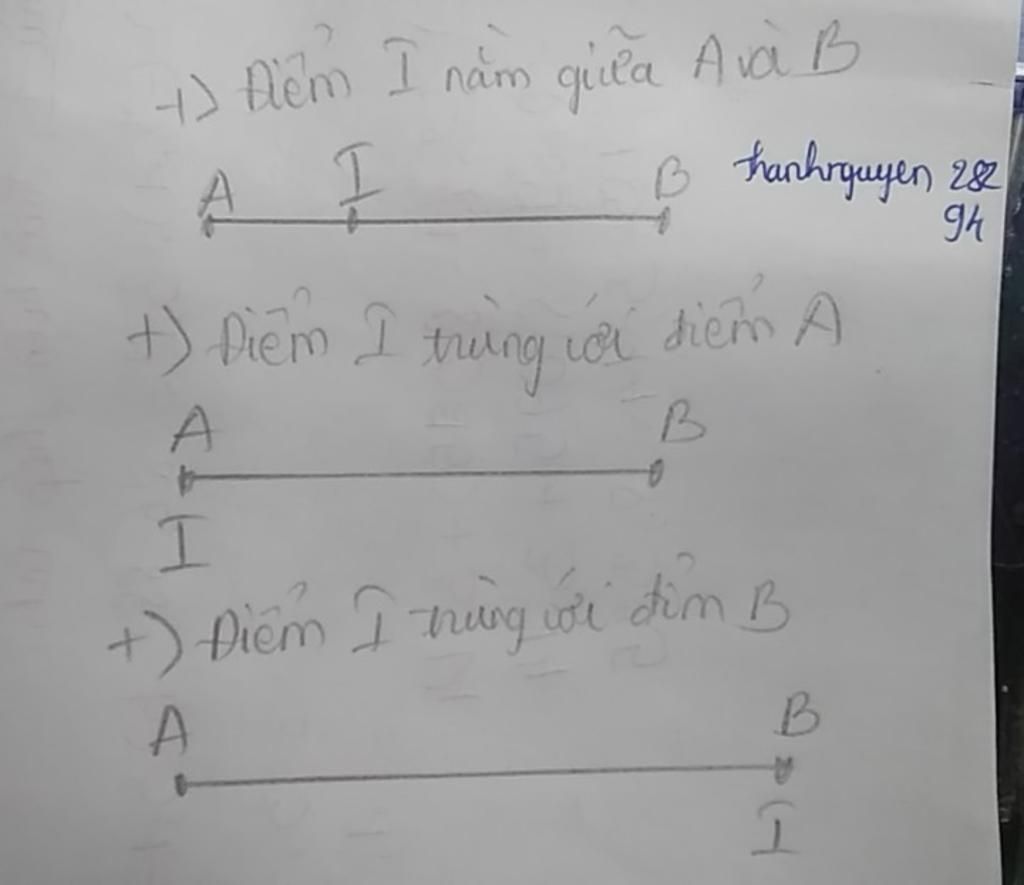 +) Điểm I nằm giữa A và B
A I B
thanhnguyen 282
94
+) Điểm I trùng với điểm A
A B
I
+) Điểm I trùng với đỉm B
A B
I